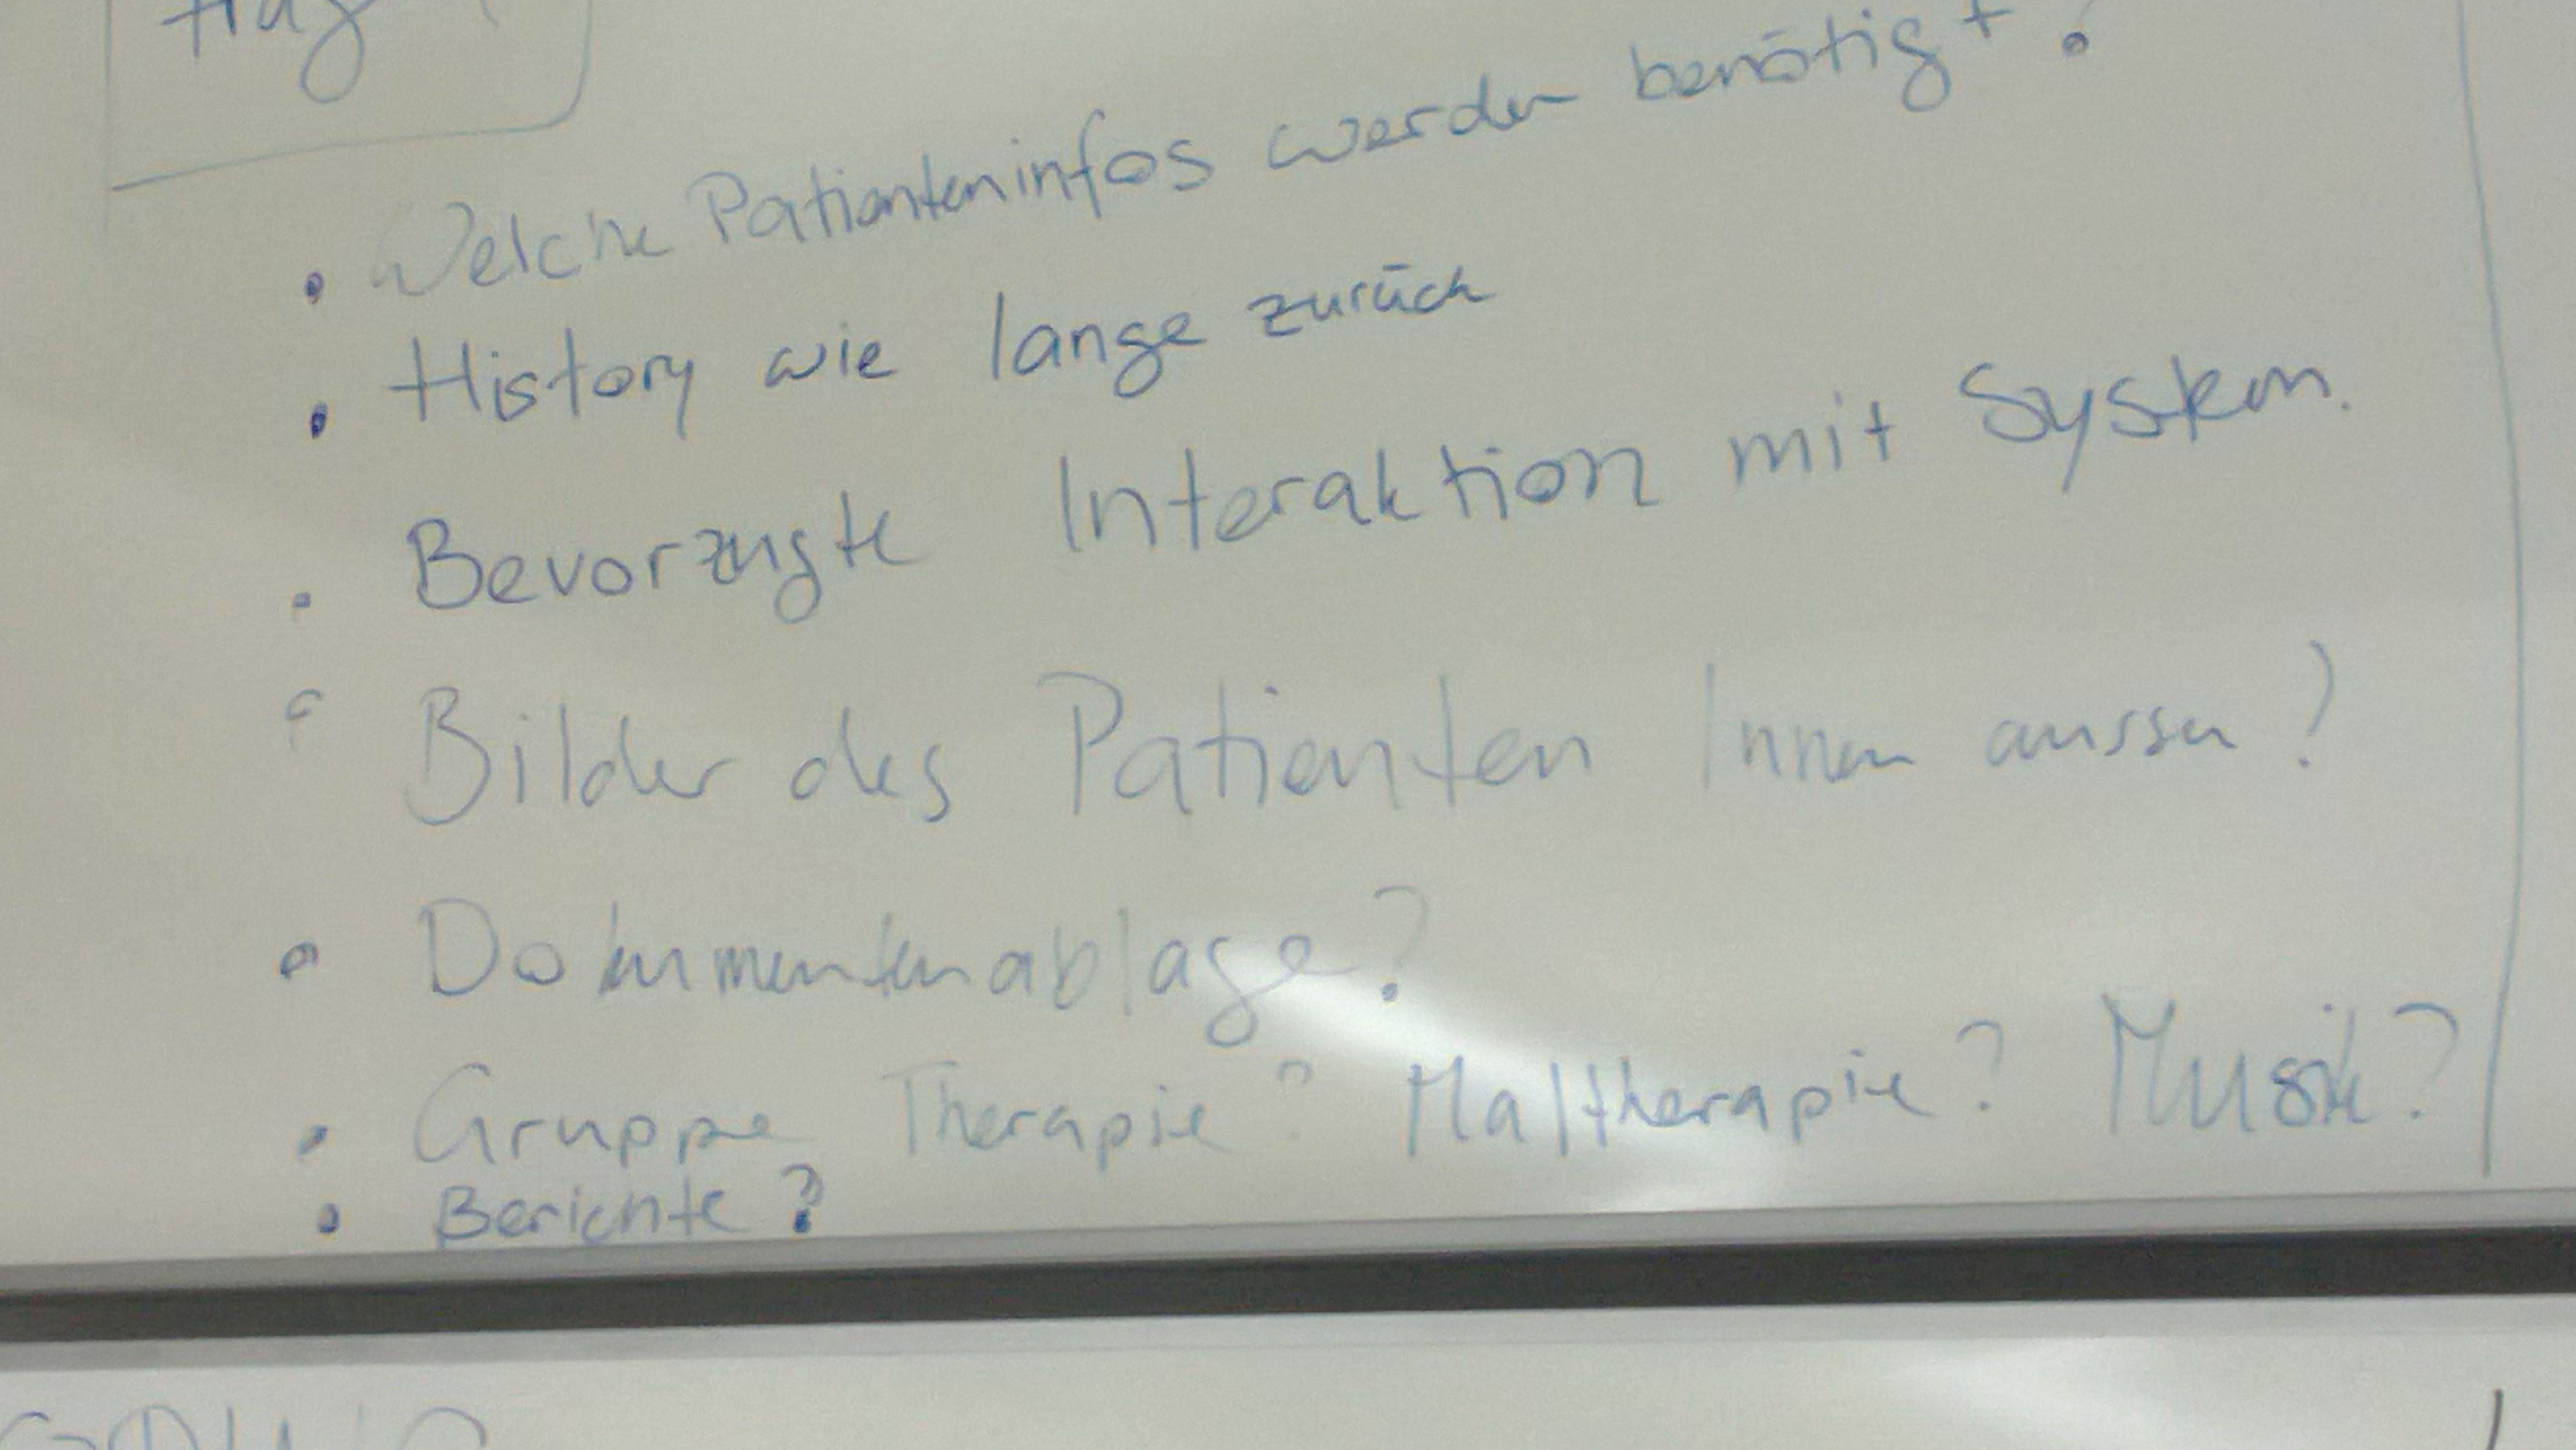 • Welche Patienteninfos werden benötigt?
• History wie lange zurück
• Bevorzugte Interaktion mit System.
• Bilder des Patienten Innen aussen?
• Dokumentenablage?
• Gruppe Therapie? Maltherapie? Musik?
• Berichte?